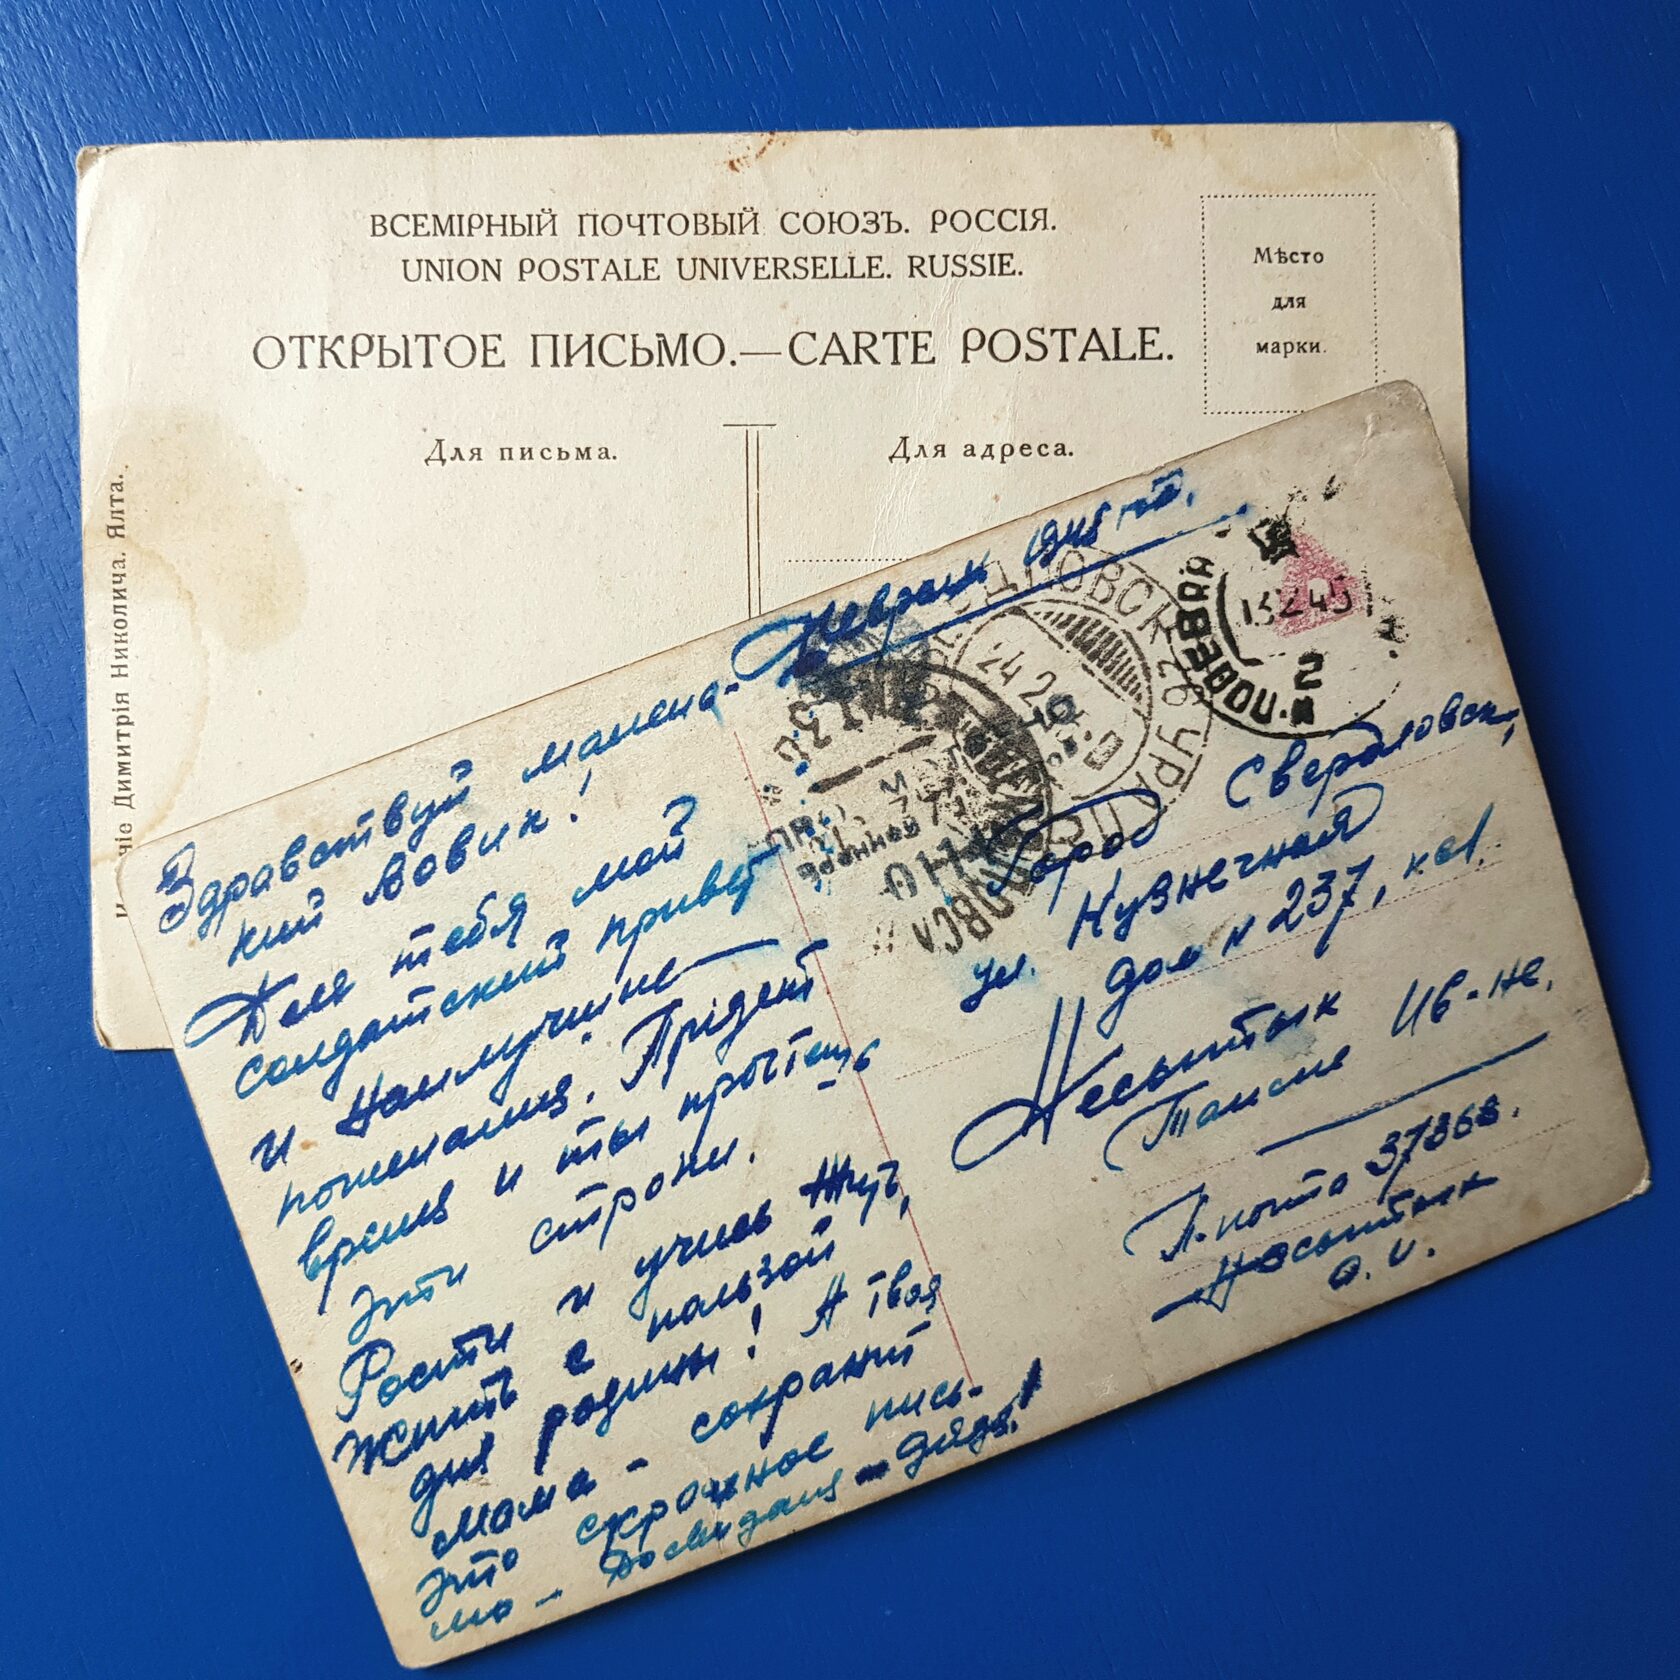 ВСЕМІРНЫЙ ПОЧТОВЫЙ СОЮЗЪ. РОССІЯ.
UNION POSTALE UNIVERSELLE. RUSSIE.
ОТКРЫТОЕ ПИСЬМО.—CARTE POSTALE.
Мѣсто
для
марки.
Для письма.
Для адреса.
Димитрія Николича. Ялта.
1945
Здравствуй малень-
кий Вовик!
Для тебя мой
солдатский привет
и наилучшие
пожелания. Прідет
время и ты прочтешь
эти строки.
Рости и учись жуч,
жить с пользой
для родины! А твоя
мама - сохранит
это скрочное пись-
мо - Досвидания - дядя!
Город Свердловск,
ул. Кузнечная
дом N 237, кв1.
Несытых
Таисие Ив-не.
П. почта 37363.
Несытых
А. И.
ПОЛЕВАЯ
13 2 45
2
24 2
УРАЛ